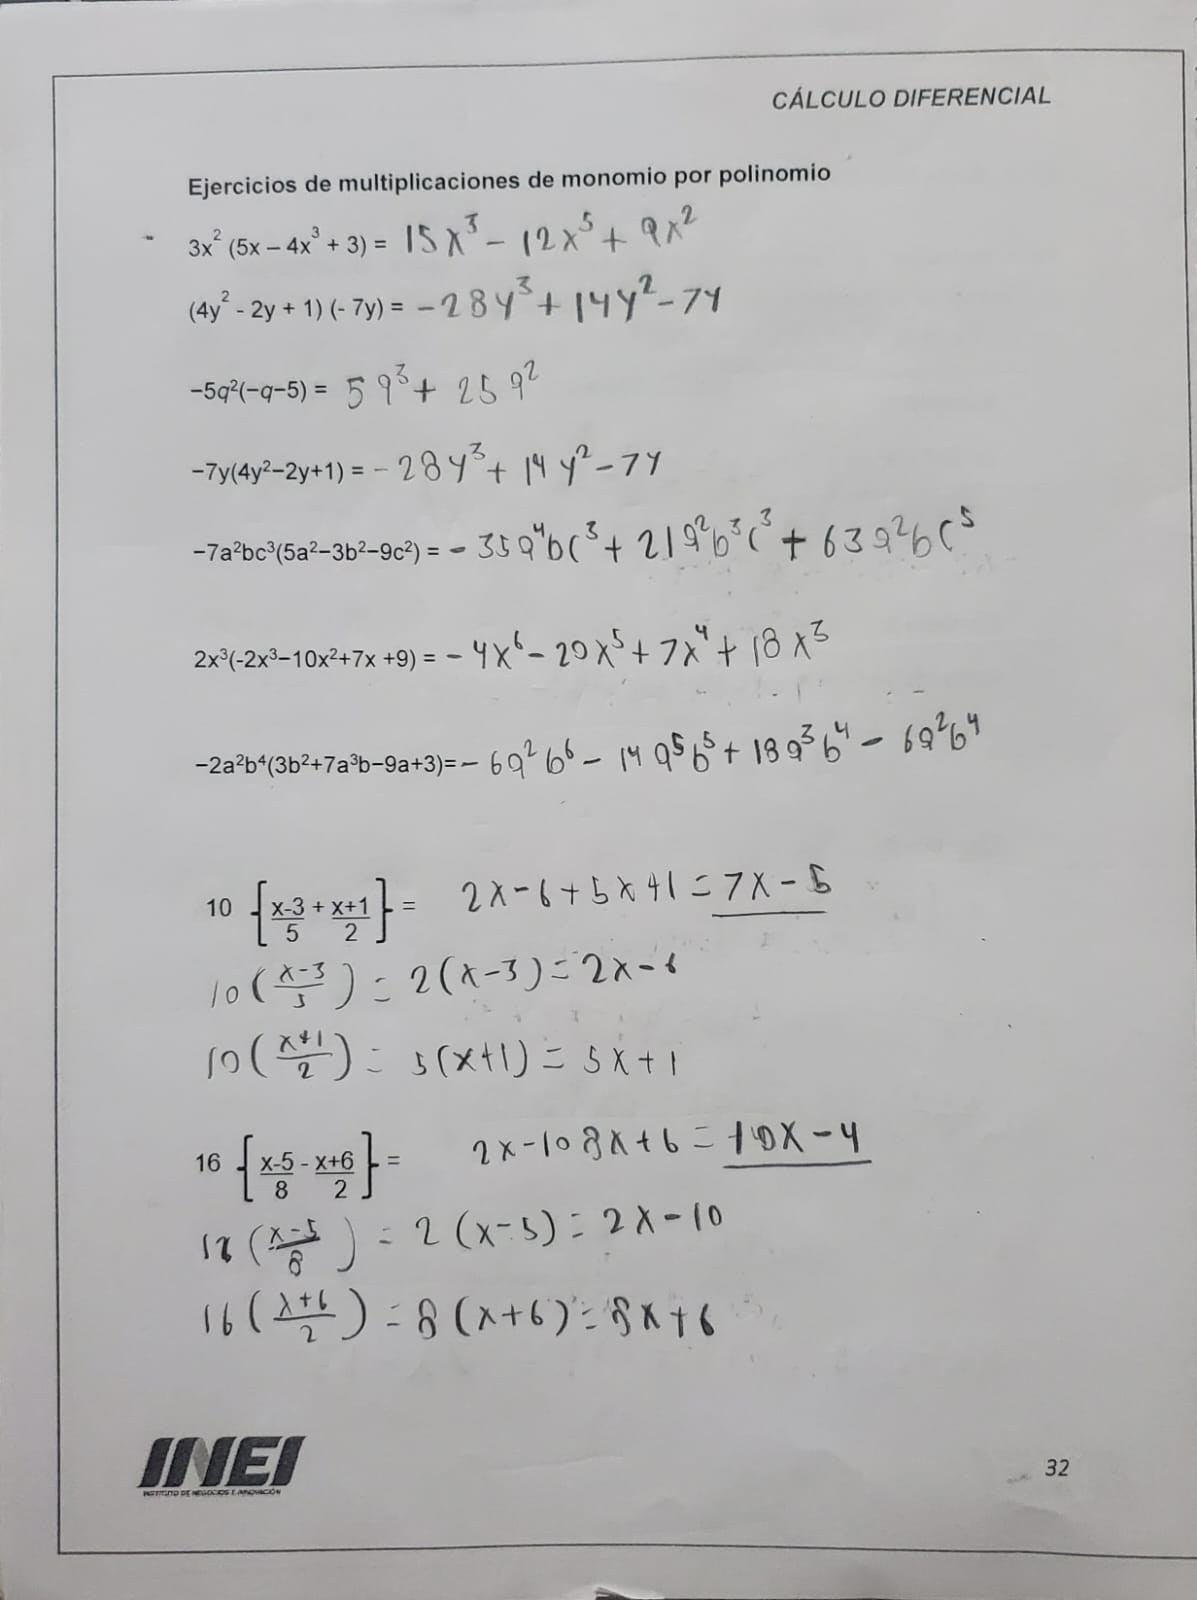 CÁLCULO DIFERENCIAL
Ejercicios de multiplicaciones de monomio por polinomio
3x² (5x – 4x³ + 3) = 15x³ – 12x⁵ + 9x²
(4y² - 2y + 1) (- 7y) = -28y³ + 14y² - 7y
−5q²(−q−5) = 5q³ + 25q²
−7y(4y²−2y+1) = -28y³ + 14y² - 7y
−7a²bc³(5a²−3b²−9c²) = - 35a⁴bc³ + 21a²b³c³ + 63a²bc⁵
2x³(-2x³−10x²+7x +9) = - 4x⁶ - 20x⁵ + 7x⁴ + 18x³
−2a²b⁴(3b²+7a³b−9a+3)= - 6a²b⁶ - 14a⁵b⁵ + 18a³b⁴ - 6a²b⁴
10 [x-3/5 + x+1/2] = 2x-6+5x+1 = 7x-5
10(x-3/5) = 2(x-3) = 2x-6
10(x+1/2) = 5(x+1) = 5x+1
16 [x-5/8 - x+6/2] = 2x-10 8x+6 = 10x-4
16(x-5/8) = 2(x-5) = 2x-10
16(x+6/2) = 8(x+6) = 8x+6
INEI
INSTITUTO DE NEGOCIOS E INNOVACIÓN
32